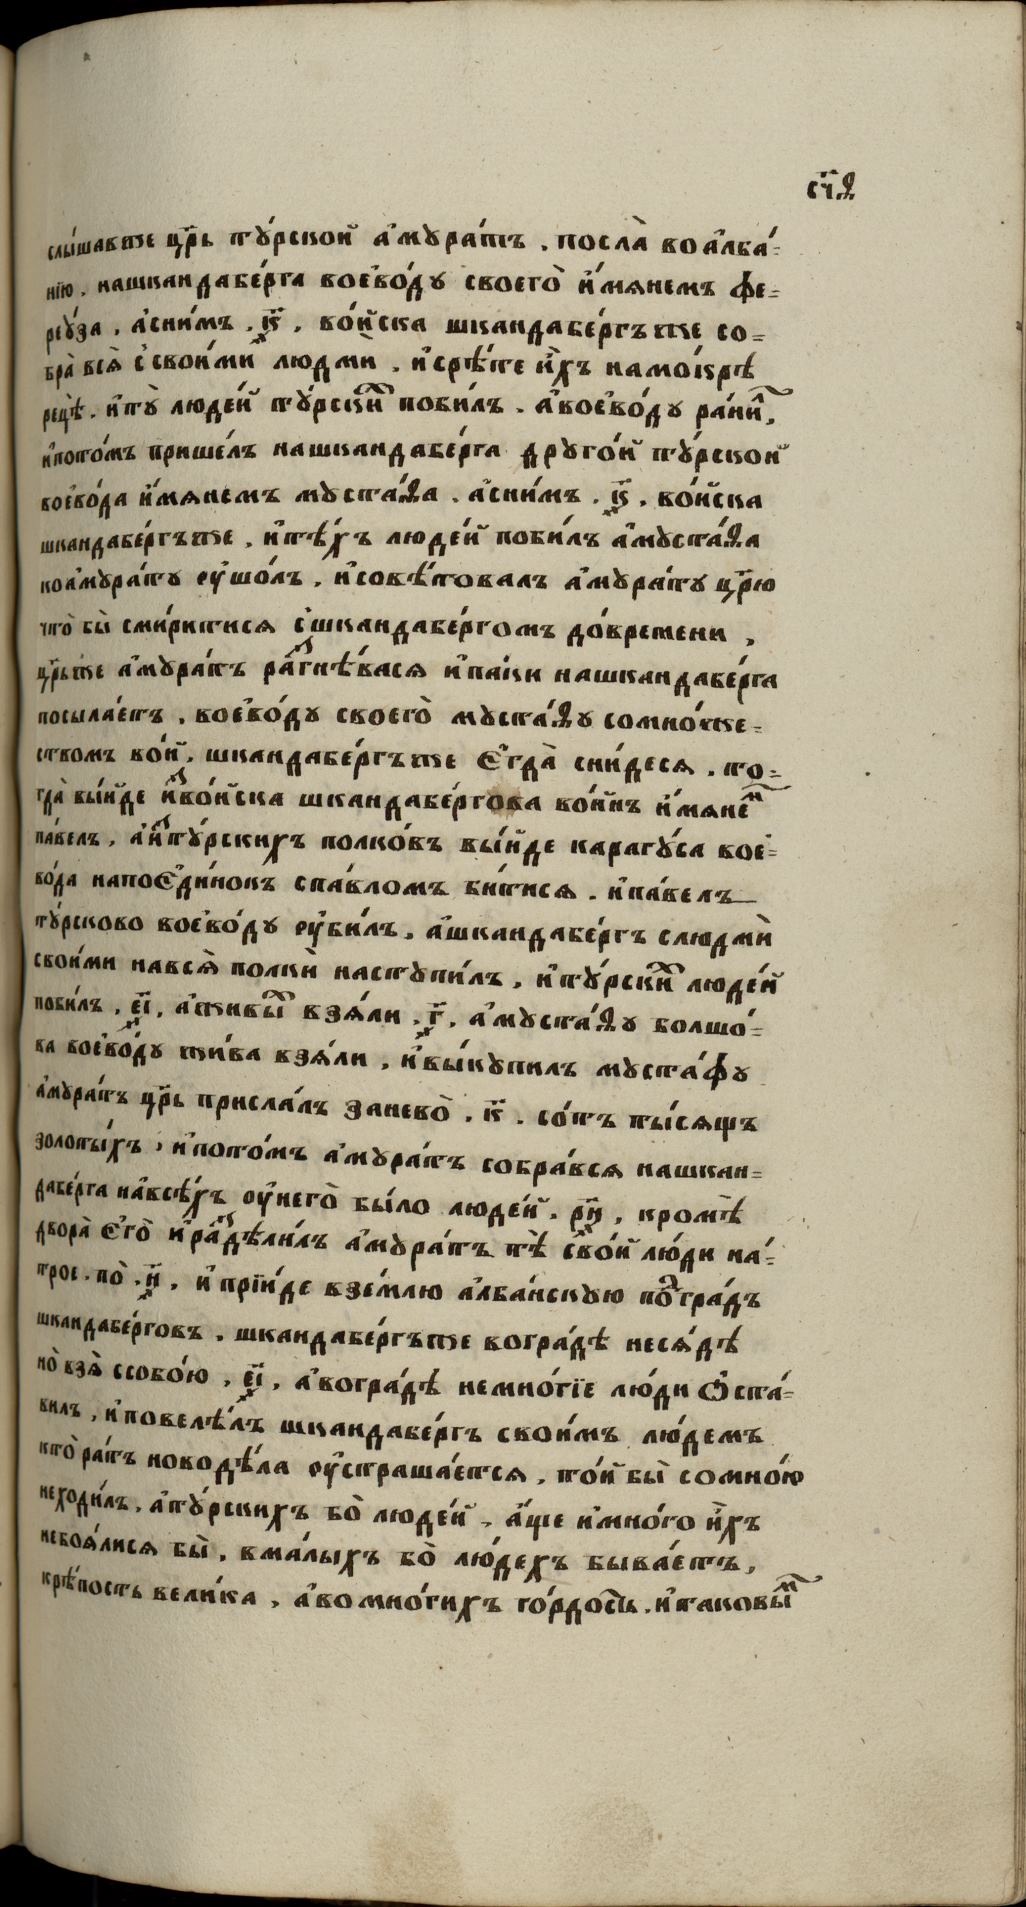 сч҃ѳ
слы́шавъже цр҃ь ту́рской а҆мура́тъ . посла̀ во а҆лба́=
нїю . нашкандабе́рга воево́ду своего̀ и҆́мянемъ фе=
реу́за , а҆сни́мъ . ҂к҃ , во́йска шкандабе́ргъже со=
бра̀ вся̀ с своими людмѝ , и҆срѣ́те и҆̀хъ намо́крѣ
рецѣ̀ . и҆ту̀ люде́й ту́рски́х поби́лъ . а҆воево́ду ра́нил ,
и҆пото́мъ прише́лъ нашкандабе́рга друго́й ту́рской
воево́да и҆́мянемъ муста́ѳа . а҆сни́мъ . ҂к҃ . во́йска
шкандабе́ргъже , и҆тѣ́хъ люде́й поби́лъ а҆муста́ѳа
коамура́ту ѹ҆шо́лъ , и҆совѣ́товалъ а҆мура́ту цр҃ю
что̀ бы̀ смири́тися с̾шкандабе́ргомъ до́времени ,
цр҃ьже а҆мура́тъ разгнѣ́вася и҆па́ки нашкандабе́рга
посыла́етъ . воево́ду своего̀ муста́ѳу сомно́же=
ствомъ во́й . шкандабе́ргъже є҆гда̀ сни́деся . то=
гда̀ вы́йде и҆звойска шкандабе́ргова во́инъ и҆́мянем
па́велъ , а҆изту́рскихъ полко́въ вы́йде карагу́са вое=
во́да напоєди́нокъ спа́вломъ би́тися . и҆па́велъ
ту́рсково воево́ду ѹ҆би́лъ . а҆шкандабе́ргъ слюдмѝ
свои́ми нався̀ полкѝ наступи́лъ , и҆ту́рских люде́й
поби́лъ . ҂є҃і , а҆живых взя́ли . ҂г҃ , а҆муста́ѳу болшо́=
ва воево́ду жи́ва взя́ли , и҆вы́купилъ муста́фу
а҆мура́тъ цр҃ь присла́лъ занево̀ . к҃ . со́тъ ты́сящъ
золоты́хъ , и҆пото́мъ а҆мура́тъ собра́вся нашкан=
дабе́рга на́всѣхъ ѹ҆него̀ бы́ло люде́й . р҃н , кромѣ̀
двора̀ є҆го̀ и҆раздѣли́лъ а҆мура́тъ тѣ̀ свои́ лю́ди на́=
трое . по̀ . ҂н҃ , и҆прїи́де взе́млю а҆лба́нскую под гра́дъ
шкандабе́рговъ . шкандабе́ргъже вогра́дѣ неся́дѣ
но̀ взя̀ ссобо́ю , ҂є҃і , а҆вогра́дѣ немно́гїе лю́ди ѡ҆ста́=
вилъ , и҆повелѣ́лъ шкандабе́ргъ свои́мъ лю́демъ
кто̀ ра́тъ ново дѣ́ла ѹ҆страша́ется , то́й бы̀ сомно́ю
неходи́лъ , а҆ту́рскихъ бо̀ люде́й , а҆́ще и҆мно́го и҆̀хъ
небоя́лися бы̀ , вма́лыхъ бо̀ лю́дехъ быва́етъ ,
крѣ́пость вели́ка , а҆вомно́гихъ го́рдость . и҆таковым